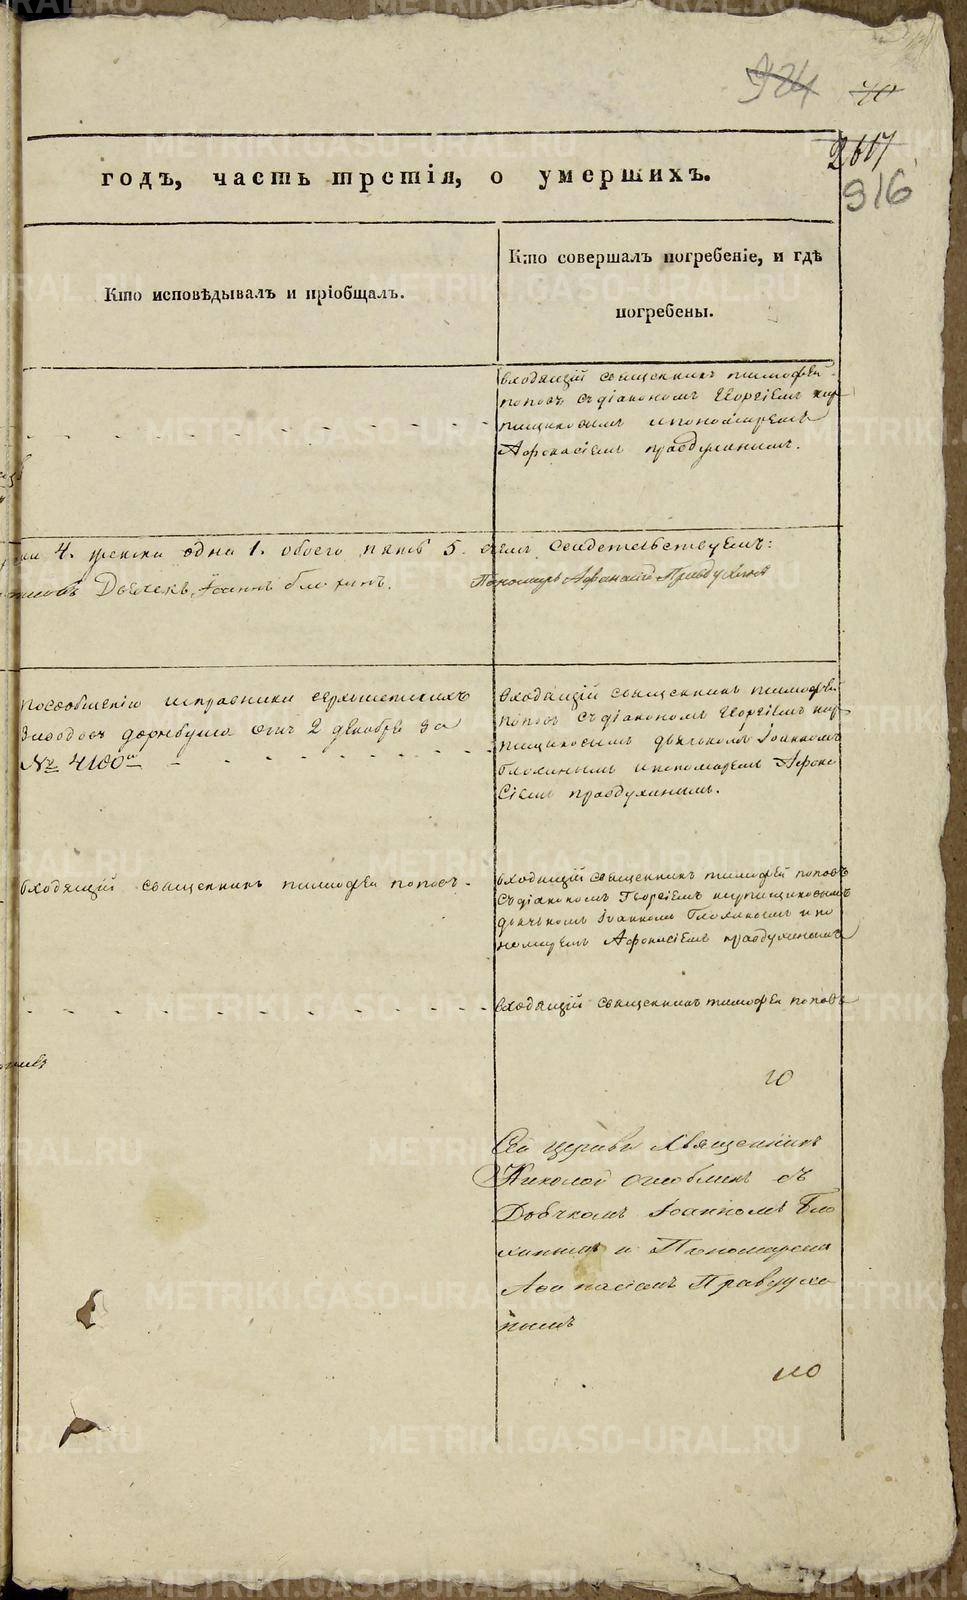 924
40
2617
916
годъ, часть третія, о умершихъ.
Кто исповѣдывалъ и пріобщалъ.
Кто совершалъ погребеніе, и гдѣ
погребены.
входящій священникъ тимофей
поповъ съ діакономъ Георгіемъ кир
пищиковымъ и пономаремъ
Афонасіемъ правдухинымъ.
4. женска одна 1. обоего пять 5. чемъ свидетельствуемъ:
Дьячекъ Іоаннъ блохинъ.
Пономарь Афанасій Правдухинъ
посообшенію исправника верхисетскихъ
Заводовъ дорнбуша отъ 2 декабря за
№ 4180м
входящій священникъ тимофей
поповъ съ діакономъ Георгіемъ кир
пищиковымъ дьячькомъ Іоанномъ
блохинымъ и пономаремъ Афона
сіемъ правдухинымъ.
входящій священникъ тимофей поповъ.
входящій священникъ тимофей поповъ
съ діакономъ Георгіемъ кирпищиковымъ
дьячькомъ Іоанномъ Блохинымъ и по
номаремъ Афонасіемъ правдухинымъ
входящій священникъ тимофей поповъ
Священникъ
Николой съ
Дьячкомъ Іоанномъ Бло
хинымъ и Пономаремъ
Афонасіемъ Правдухи
нымъ